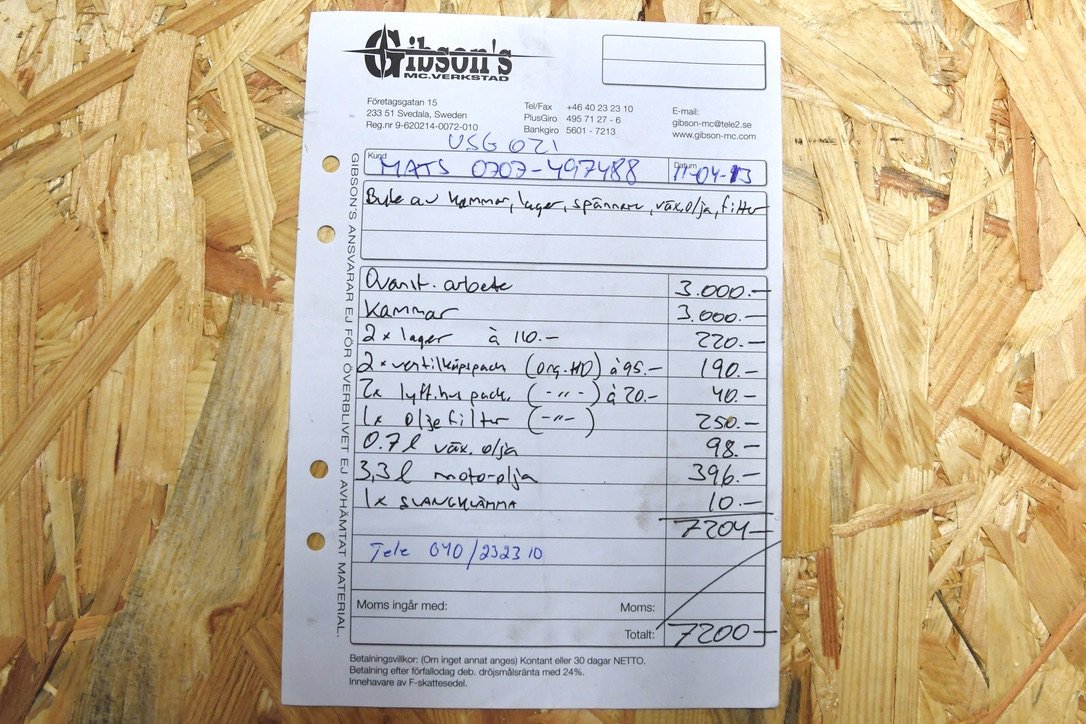 Gibson's
MC.VERKSTAD
Företagsgatan 15
233 51 Svedala, Sweden
Reg.nr 9-620214-0072-010
Tel/Fax +46 40 23 23 10
PlusGiro 495 71 27 - 6
Bankgiro 5601 - 7213
E-mail:
gibson-mc@tele2.se
www.gibson-mc.com
USG 021
Kund MATS 0707-497488
Datum 11-04-13
Byte av kammar, lager, spännare, väx.olja, filter
Ovanst. arbete 3.000.-
Kammar 3.000.-
2x lager à 110.- 220.-
2x ventilkåpspack (org.HD) à 95.- 190.-
2x lyft.hus pack. (-"-) à 20.- 40.-
1x oljefilter (-"-) 250.-
0.7l väx. olja 98.-
3,3l motorolja 396.-
1x SLANGKLÄMMA 10.-
7204.-
Tele 040/232310
Moms ingår med: Moms:
Totalt: 7200.-
Betalningsvillkor: (Om inget annat anges) Kontant eller 30 dagar NETTO.
Betalning efter förfallodag deb. dröjsmålsränta med 24%.
Innehavare av F-skattesedel.
GIBSON'S ANSVARAR EJ FÖR ÖVERBLIVET EJ AVHÄMTAT MATERIAL.